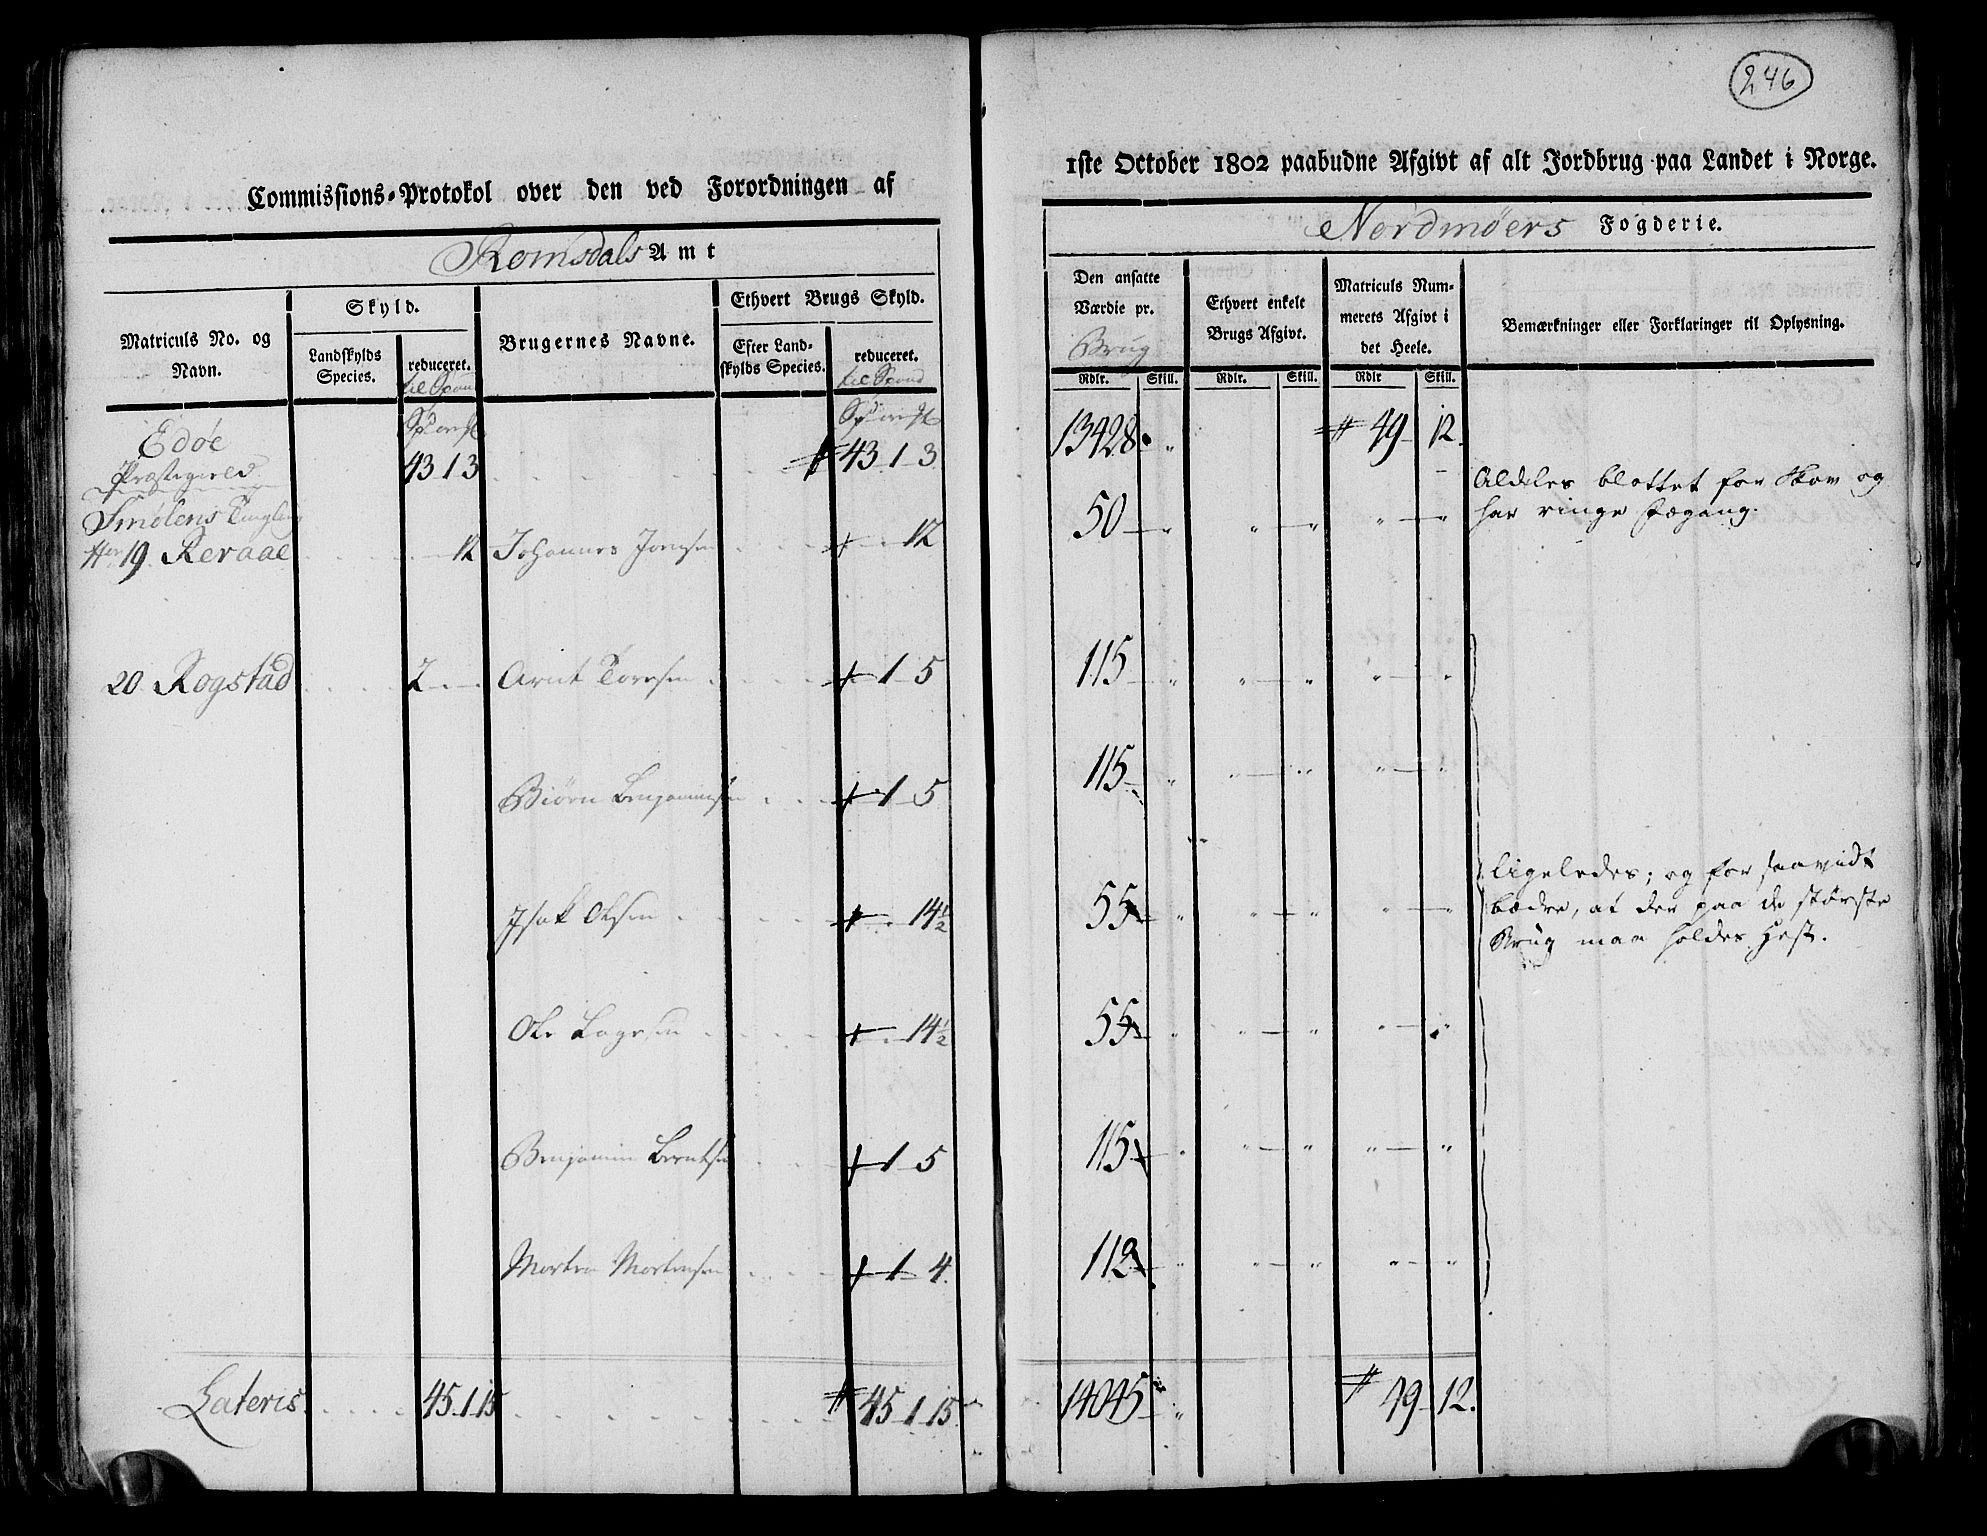 246
Commissions-Protokol over den ved Forordningen af
1ste October 1802 paabudne Afgivt af alt Jordbrug paa Landet i Norge.
Romsdals Amt
Nordmöers Fogderie.
Matriculs No. og Navn.
Skyld.
Landskylds Species.
reduceret.
til Spand
Brugernes Navne.
Ethvert Brugs Skyld.
Efter Landskylds Species.
reduceret.
til Spand
Den ansatte Værdie pr.
Brug
Rdlr. Skill.
Ethvert enkelt Brugs Afgivt.
Rdlr. Skill.
Matriculs Nummerets Afgivt i det Heele.
Rdlr Skill.
Bemærkninger eller Forklaringer til Oplysning.
Edöe
Præstegield 43 1 3 43 1 3 13428 49 12
Smölens
19 Reraae 12 Johannes Jonsen 12 50
Aldeles blottet for Skov og
har ringe
20 Rogstad 2 Arnt 1 5 115
Biörn Benjaminsen 1 5 115
Isak Olsen 14½ 55
Ligeledes; og for saavidt
bædre, at der paa de störste
Brug maa holdes Hest.
Ole 14½ 55
Benjamin Berntsen 1 5 115
Morten Mortensen 1 4 112
Lateris 45 1 15 45 1 15 14045 49 12.